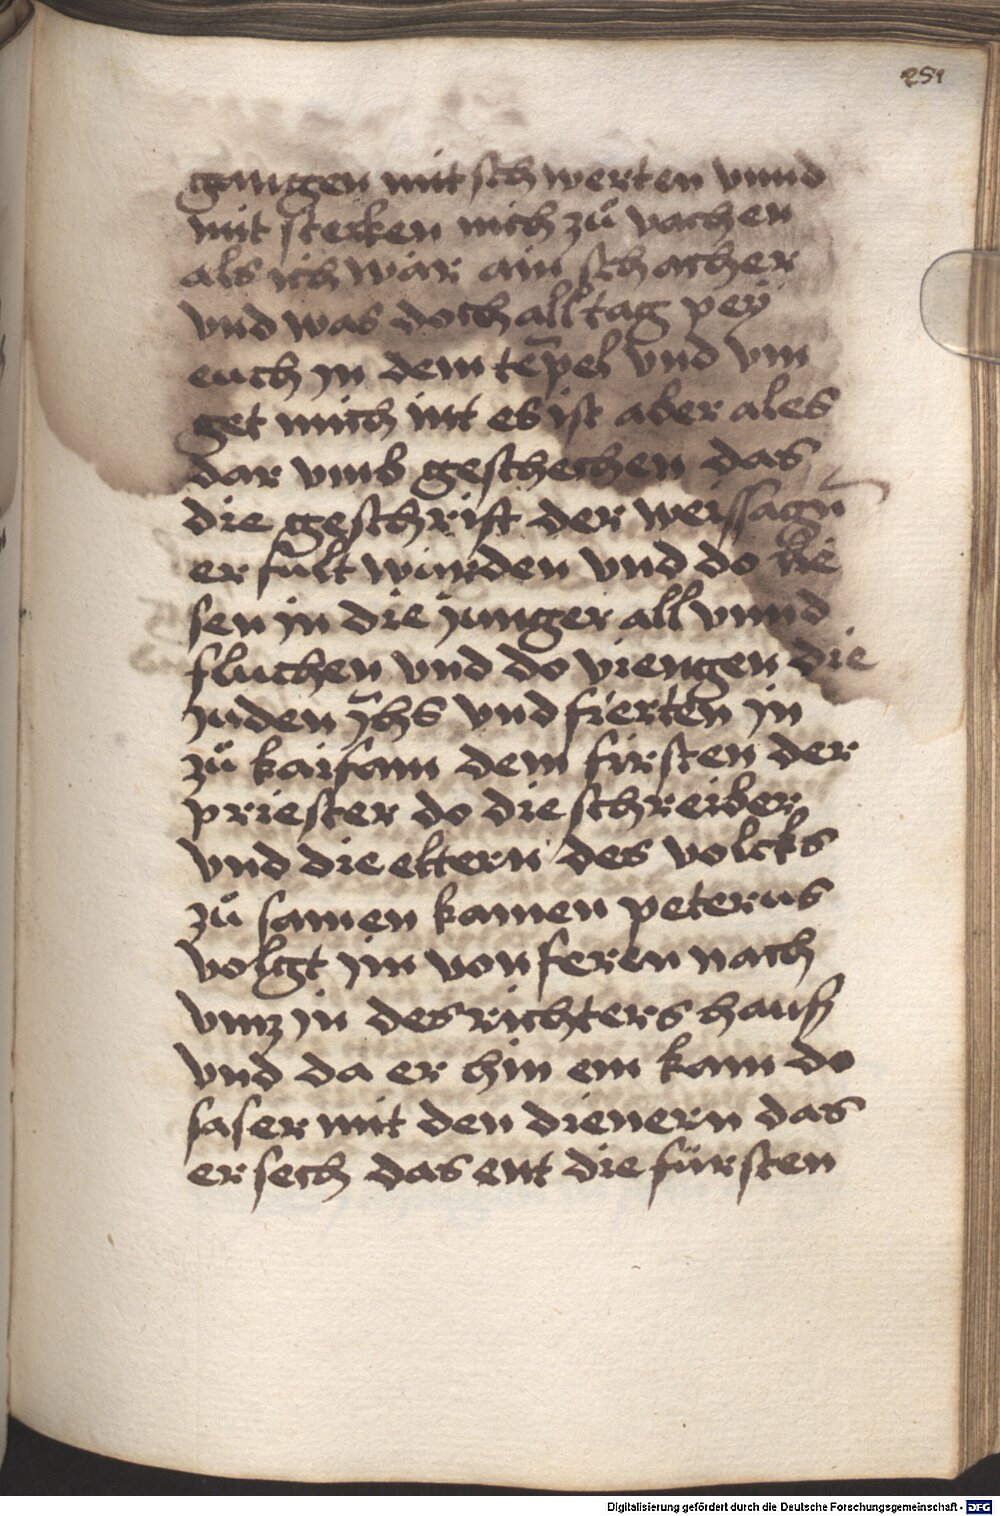 251
gangen mit schwerten vnnd
mit sterken mich zů vachen
als ich wär ain schacher
vnd was doch all tag pey
euch jn dem te̅pel vnd vin
get mich nit es ist aber ales
dar vmb geschechen das
die geschrift der weissagn̅
er fult wurden vnd do lie
sen jn die junger all vnnd
fluchen vnd do viengen die
juden jh̅s vnd fierten jn
zů kaifam dem firsten der
priester do die schreiber
vnd die eltern des volcks
zů samen kamen peterus
volgt jm von feren nach
vnnz jn des richters hauß
vnd da er hin ein kam do
saser mit den dienern das
er sech das ent die fürsten
Digitalisierung gefördert durch die Deutsche Forschungsgemeinschaft - DFG